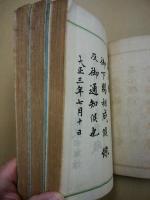 御下賜相成候條
及御通知候也
大正三年七月十日